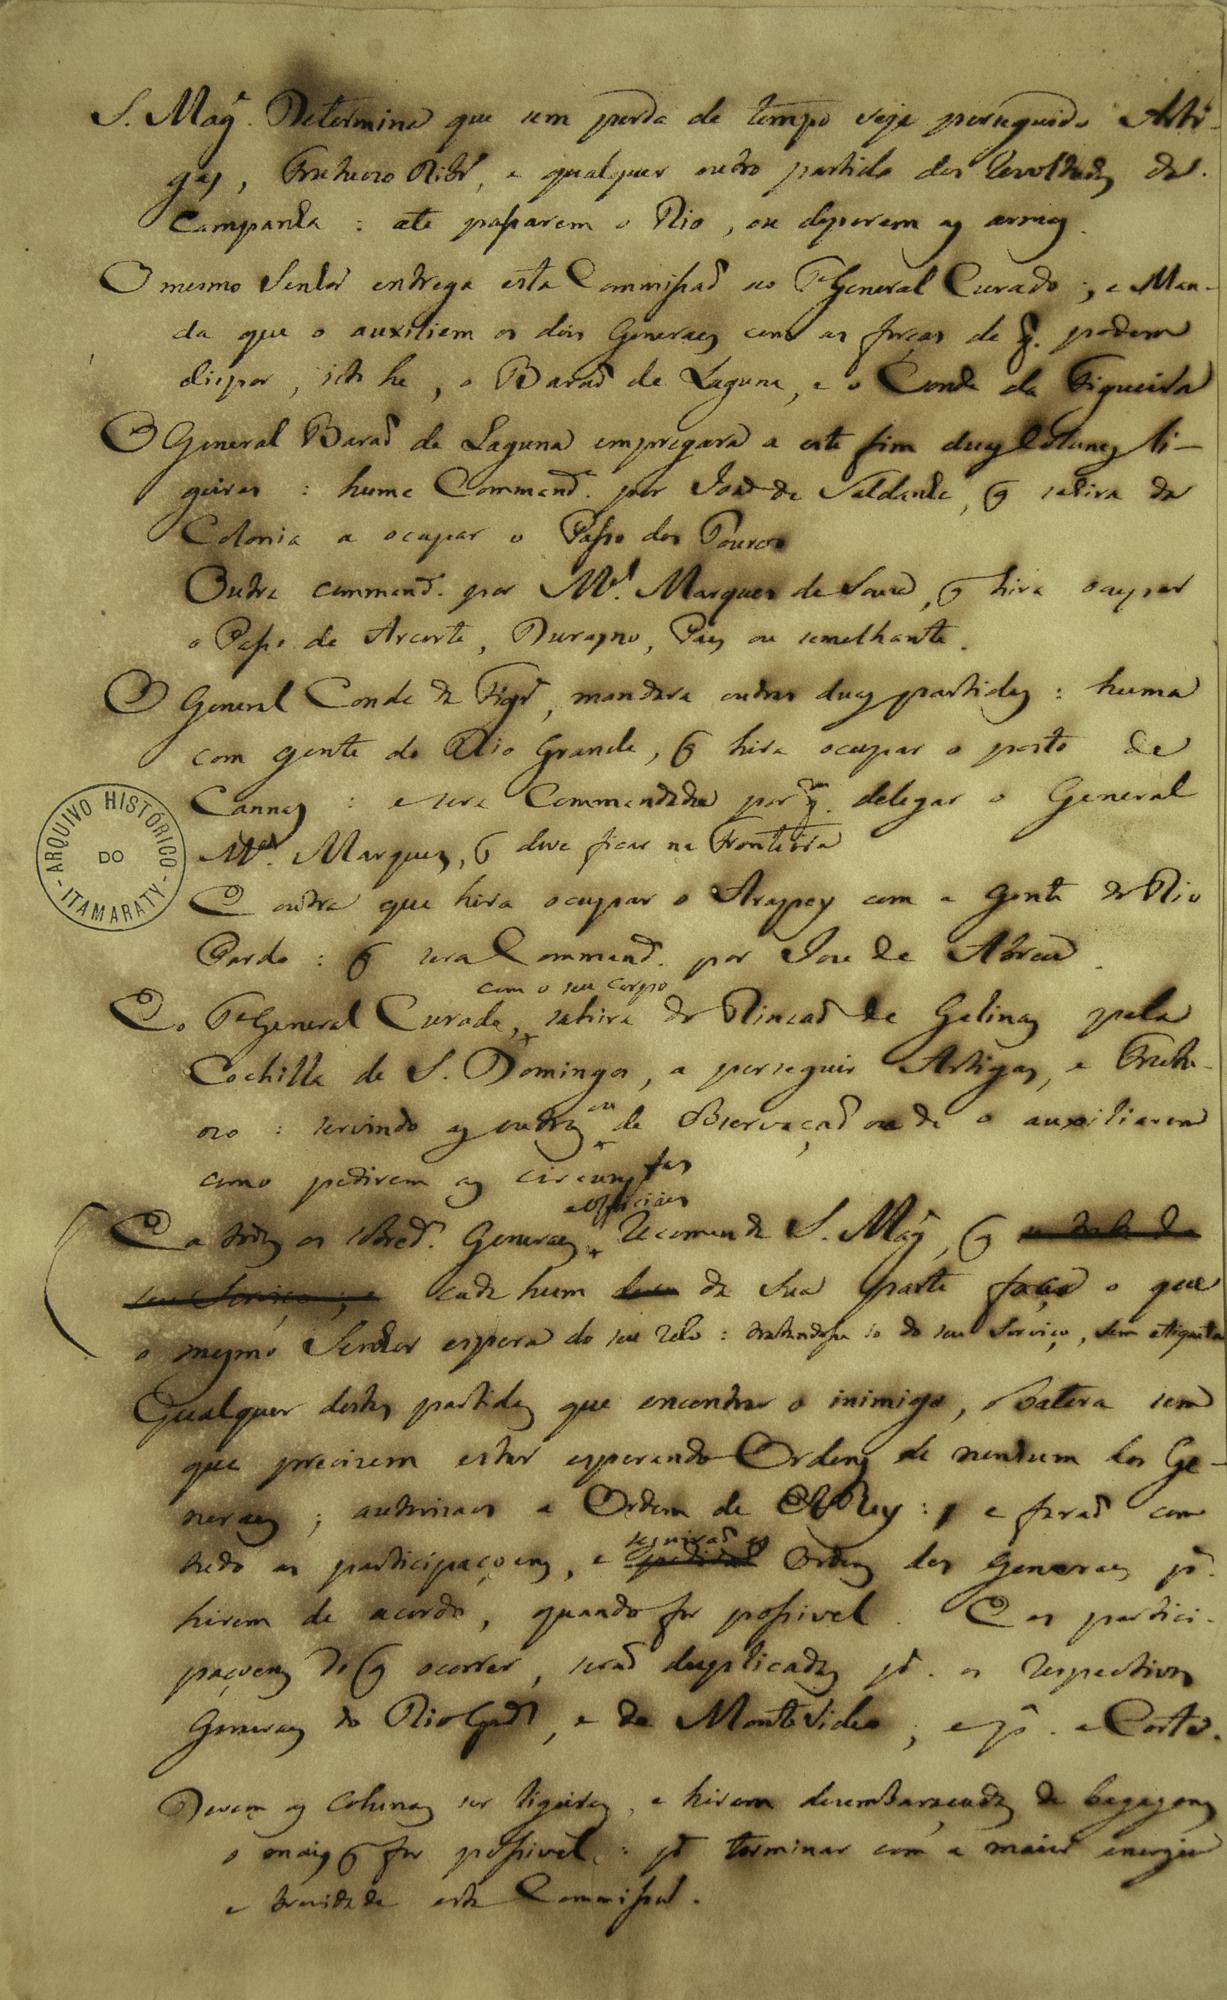 S. Mag.e Determina que sem perda de tempo seja perseguido Arti-
gas, Frutuozo Ribr.o, e qualquer outro partido dos revoltados da
Campanha : ate passarem o Rio, ou deporem as armas.
O mesmo Senhor entrega esta Commissaõ ao T.e General Curado ; e Man-
da que o auxiliem os dois Generaes com as forças de q. podem
dispor, isto he, o Baraõ de Laguna, e o Conde da Figueira
O General Baraõ de Laguna empregara a este fim duas Colunas li-
geiras : huma Command.a por Joaõ de Saldanha, q sahira da
Colonia a ocupar o Passo dos Touros
Outra command.a por M.el Marques de Souza, q hira ocupar
o Passo de, Durasno, Pais ou semelhante.
O General Conde da Figr.a, mandara outras duas partidas : huma
com gente do Rio Grande, q hira ocupar o posto de
Cannas : e sera Commandada por q.m delegar o General
M.el Marques, q deve ficar na Fronteira
E outra que hira ocupar o Arapey com a gente do Rio
Pardo : q sera Command.a por Jose de Abreu.
com o seu corpo
E o T.e General Curado, sahira do Rincaõ de Galinas pela
Cochilla de S. Domingos, a perseguir Artigas, e Frutu-
ozo : servindo as outras de Observaçaõ ou de o auxiliarem
ou
como pedirem as circunstas
e officiaes
E a todos os sobred.os Generaes recomenda S. Mag.e, q
cada hum da sua parte faça o que
o mesmo Senhor espera do seu zelo : tratandosse so do seu serviço, sem etiqueta
Qualquer destas partidas que encontrar o inimigo, o batera sem
que precisem estar esperando Ordens de nenhum dos Ge-
neraes ; a Ordem de El Rey : e faraõ com
seguiraõ as
tudo as participaçoens, e Ordens dos Generaes p.a
hirem de acordo, quando for possivel. E as partici-
paçoens do q ocorrer, seraõ duplicadas p.a os respectivos
Generaes do Rio Gr.de, e de Montevideo ; e p.a a Corte.
Devem as colunas ser ligeiras, e hirem desembaraçadas de bagagens
o mais q for possivel : p.a terminar com a maior energia
e brevidade esta Commissaõ.
ARQUIVO HISTÓRICO
DO
ITAMARATY